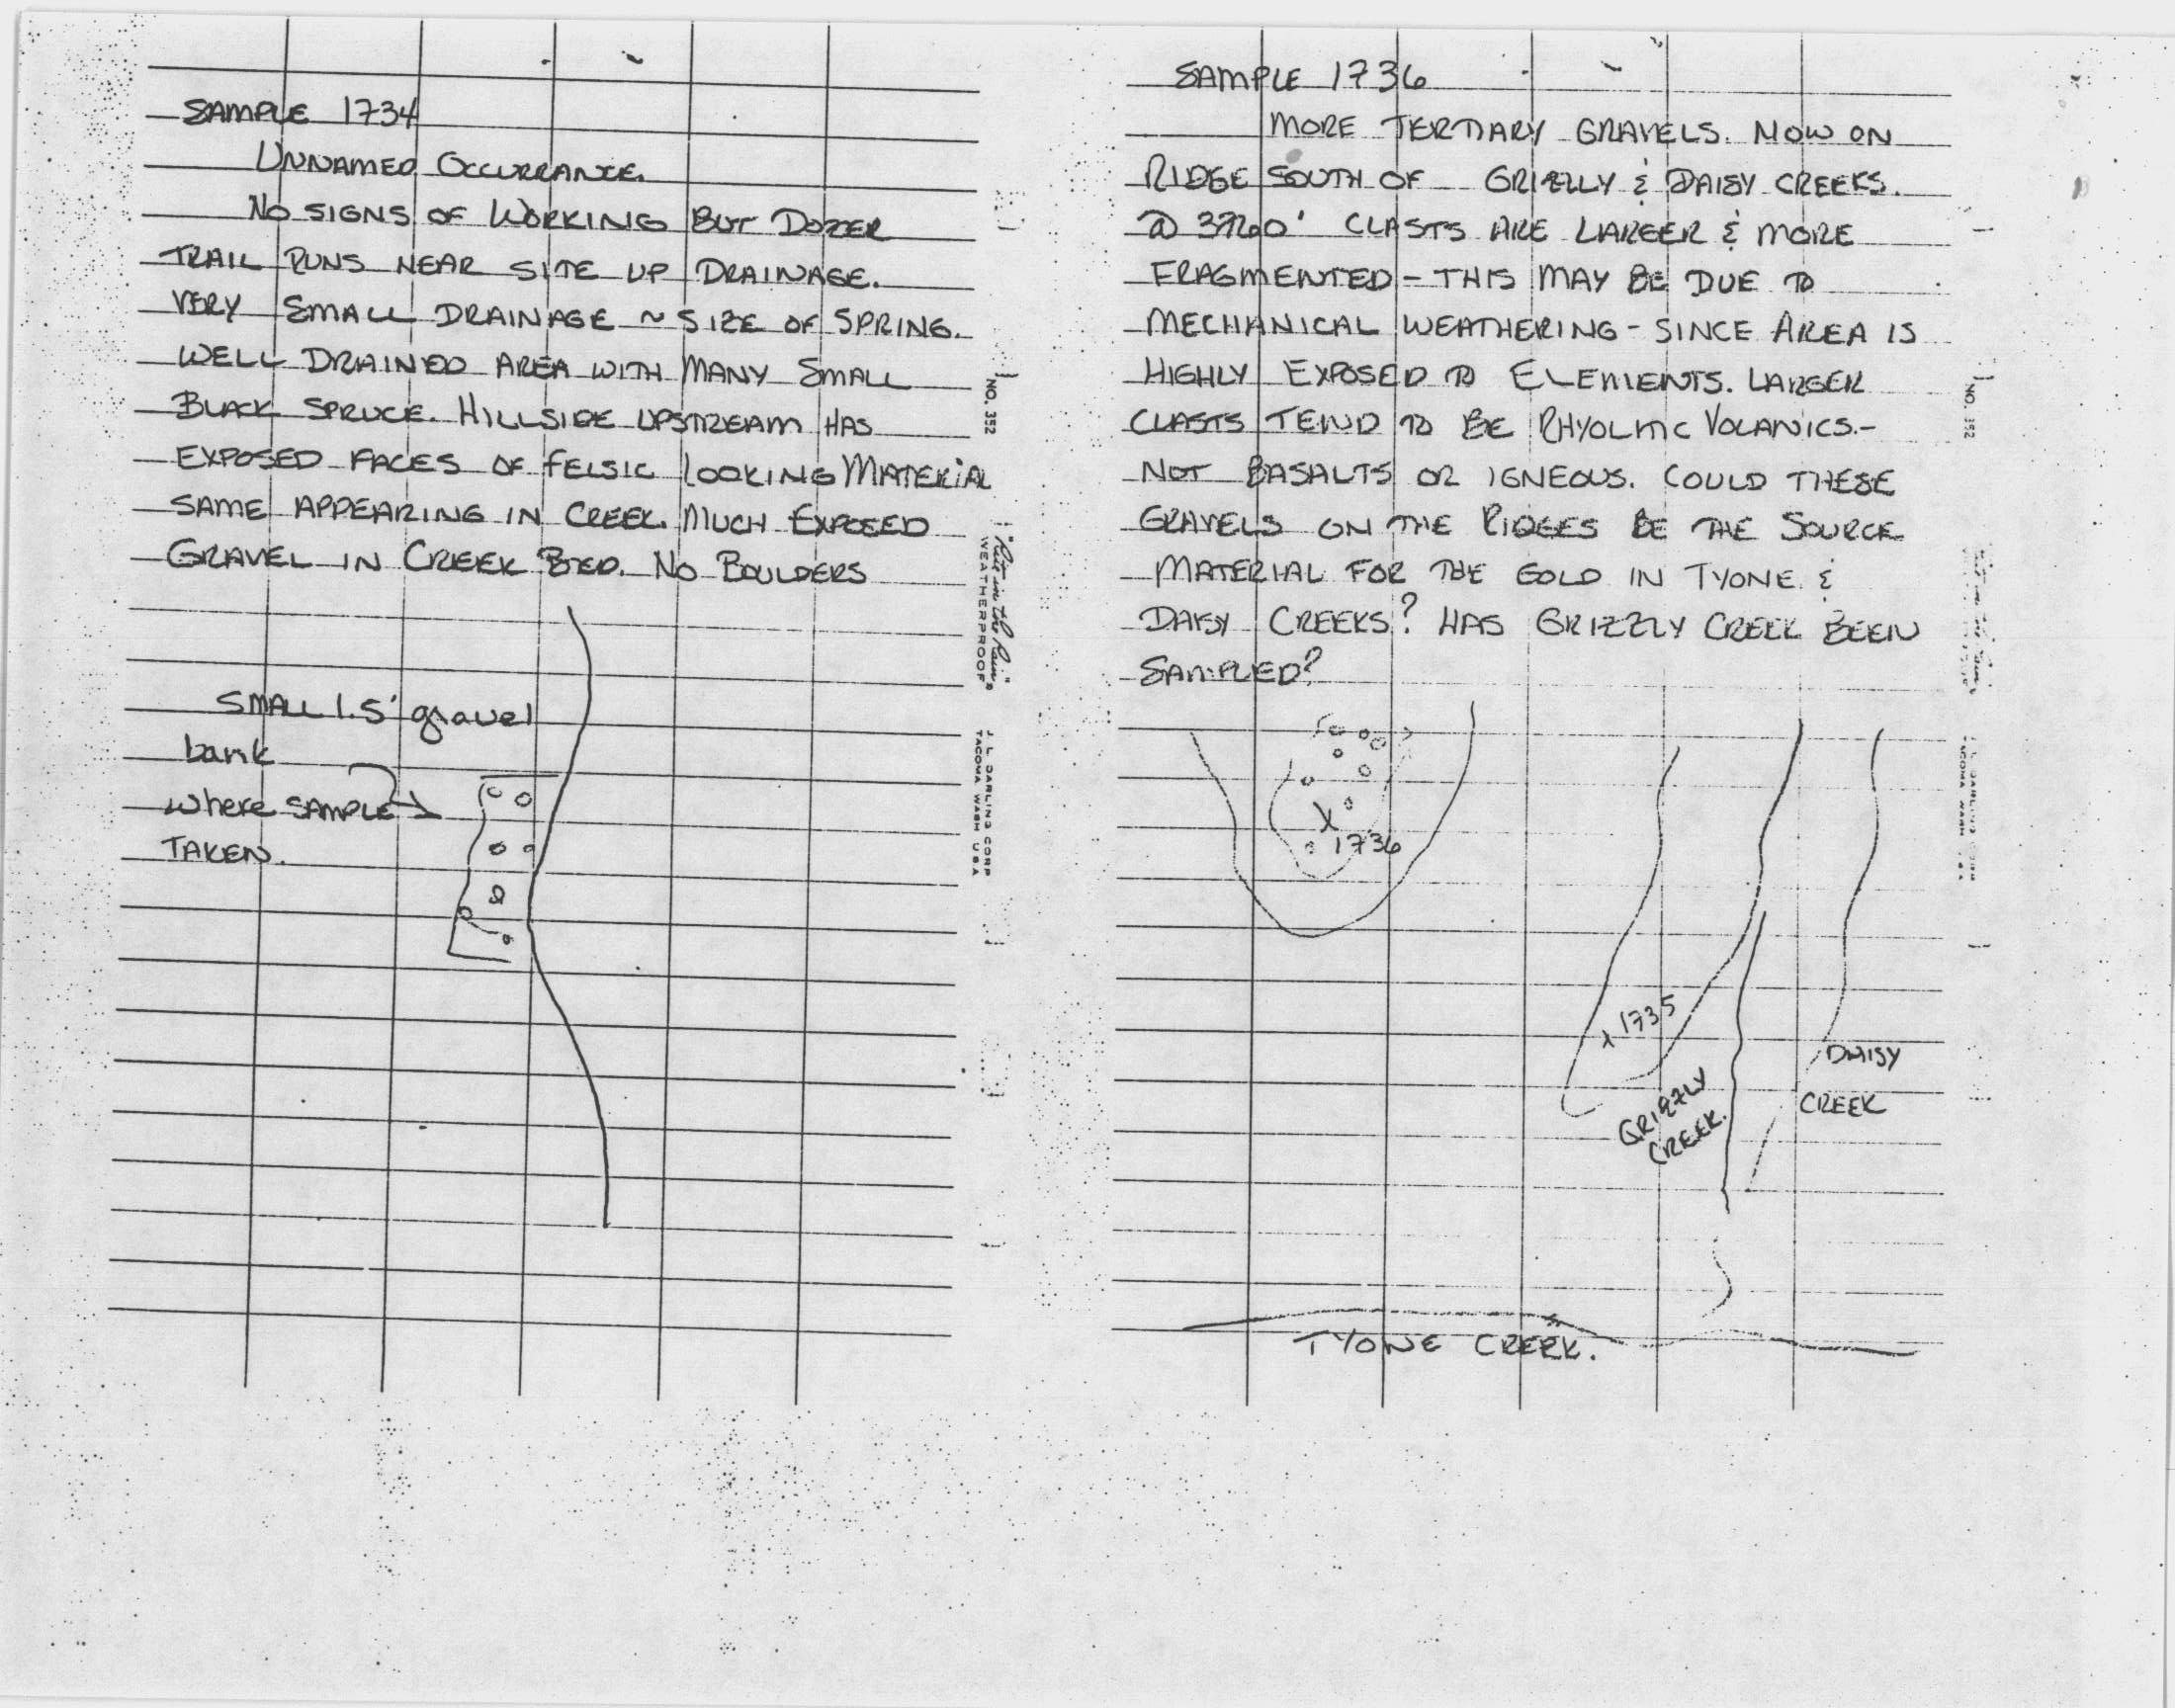 SAMPLE 1734
UNNAMED OCCURRANCE.
NO SIGNS OF WORKING BUT DOZER
TRAIL RUNS NEAR SITE UP DRAINAGE.
VERY SMALL DRAINAGE ~ SIZE OF SPRING.
WELL DRAINED AREA WITH MANY SMALL
BLACK SPRUCE. HILLSIDE UPSTREAM HAS
EXPOSED FACES OF FELSIC LOOKING MATERIAL
SAME APPEARING IN CREEK. MUCH EXPOSED
GRAVEL IN CREEK BED. NO BOULDERS
SMALL 1.5' gravel
bank
where SAMPLE
TAKEN.
NO. 352
"Rite in the Rain"
WEATHERPROOF
J. L. DARLING CORP
TACOMA WASH USA
SAMPLE 1736
MORE TERTIARY GRAVELS. NOW ON
RIDGE SOUTH OF GRIZZLY & DAISY CREEKS.
@ CLASTS ARE LARGER & MORE
FRAGMENTED - THIS MAY BE DUE TO
MECHANICAL WEATHERING - SINCE AREA IS
HIGHLY EXPOSED TO ELEMENTS. LARGER
CLASTS TEND TO BE RHYOLITIC VOLANICS.-
NOT BASALTS OR IGNEOUS. COULD THESE
GRAVELS ON THE RIDGES BE THE SOURCE
MATERIAL FOR THE GOLD IN TYONE &
DAISY CREEKS? HAS GRIZZLY CREEK BEEN
SAMPLED?
1736
X 1735
GRIZZLY
CREEK.
DAISY
CREEK
TYONE CREEK.
NO. 352